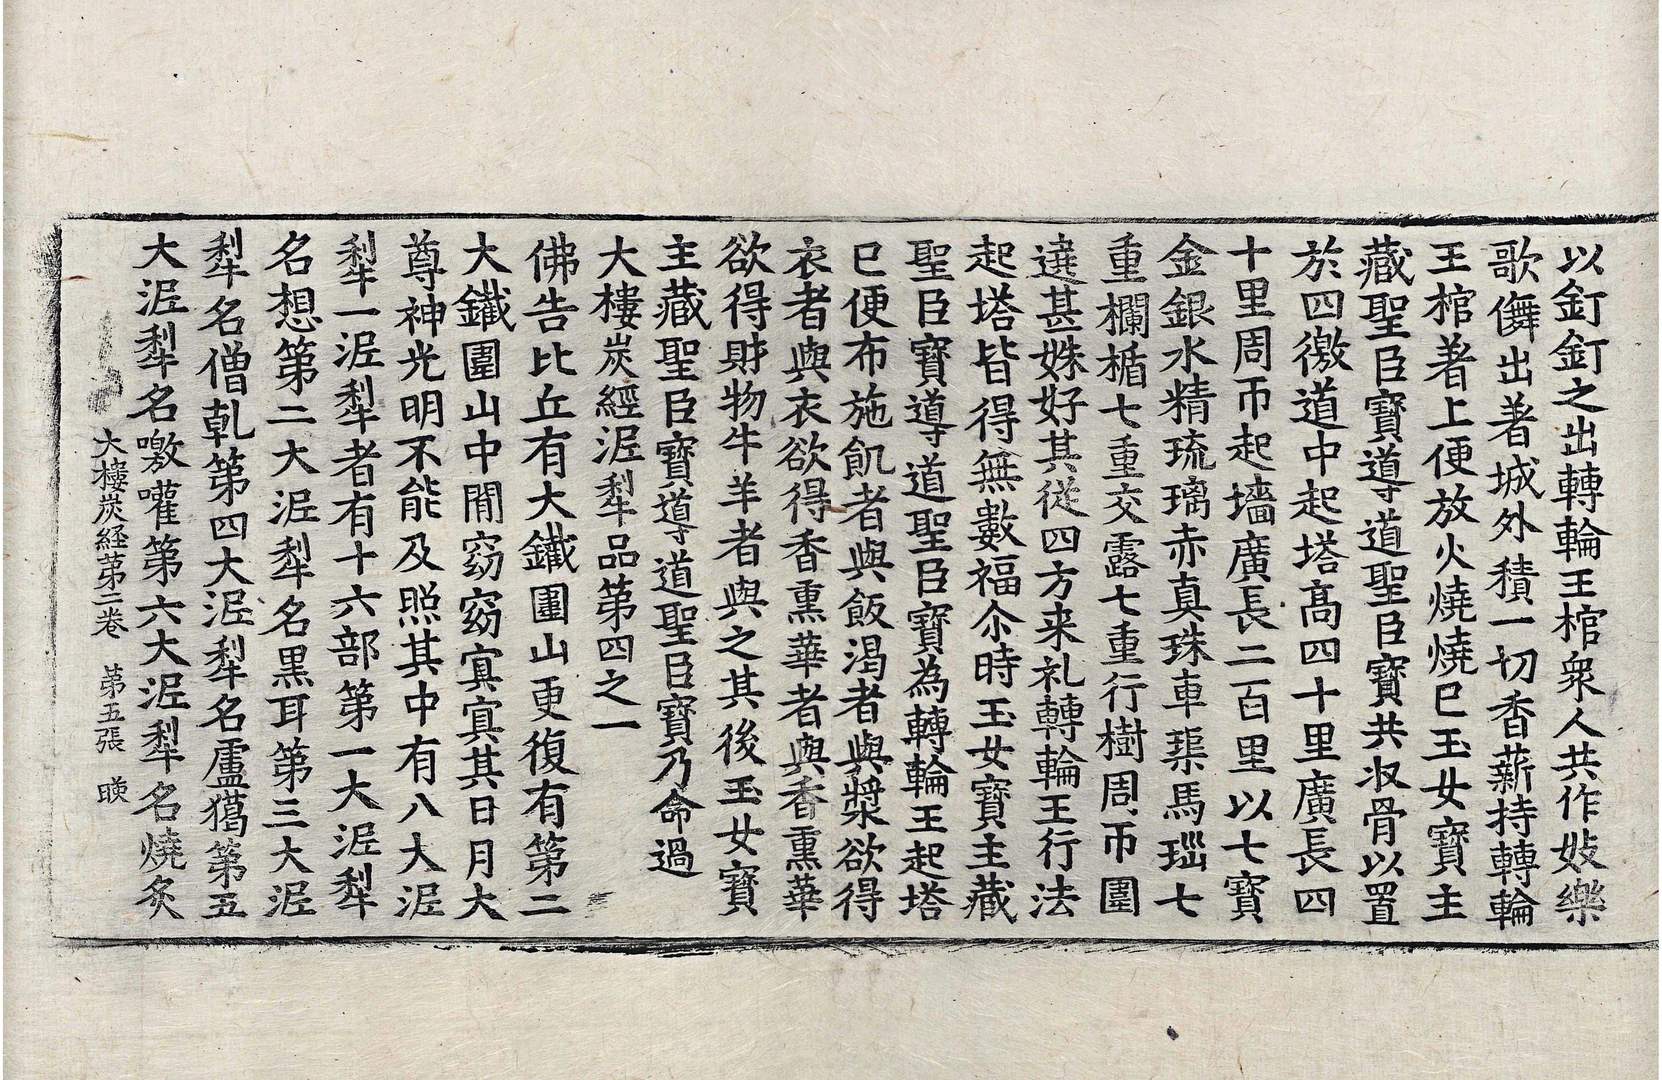 以釘釘之出轉輪王棺衆人共作妓樂
歌儛出著城外積一切香薪持轉輪
王棺著上便放火燒燒已玉女寶主
藏聖臣寶導道聖臣寶共収骨以置
於四徼道中起塔高四十里廣長四
十里周帀起墻廣長二百里以七寶
金銀水精琉璃赤真珠車𤦲馬瑙七
重欄楯七重交露七重行樹周帀圍
遶甚姝好其從四方来礼轉輪王行法
起塔皆得無數福尒時玉女寶主藏
聖臣寶導道聖臣寶為轉輪王起塔
已便布施飢者與飯渴者與漿欲得
衣者與衣欲得香熏華者與香熏華
欲得財物牛羊者與之其後玉女寶
主藏聖臣寶導道聖臣寶乃命過
大樓炭經泥犁品第四之一
佛告比丘有大鐵圍山更復有第二
大鐵圍山中間窈窈寘寘其日月大
尊神光明不能及照其中有八大泥
犁一泥犁者有十六部第一大泥犁
名想第二大泥犁名黑耳第三大泥
犁名僧乹第四大泥犁名盧獦第五
大泥犁名噭嚾第六大泥犁名燒炙
大樓炭経第二卷 第五張 暎